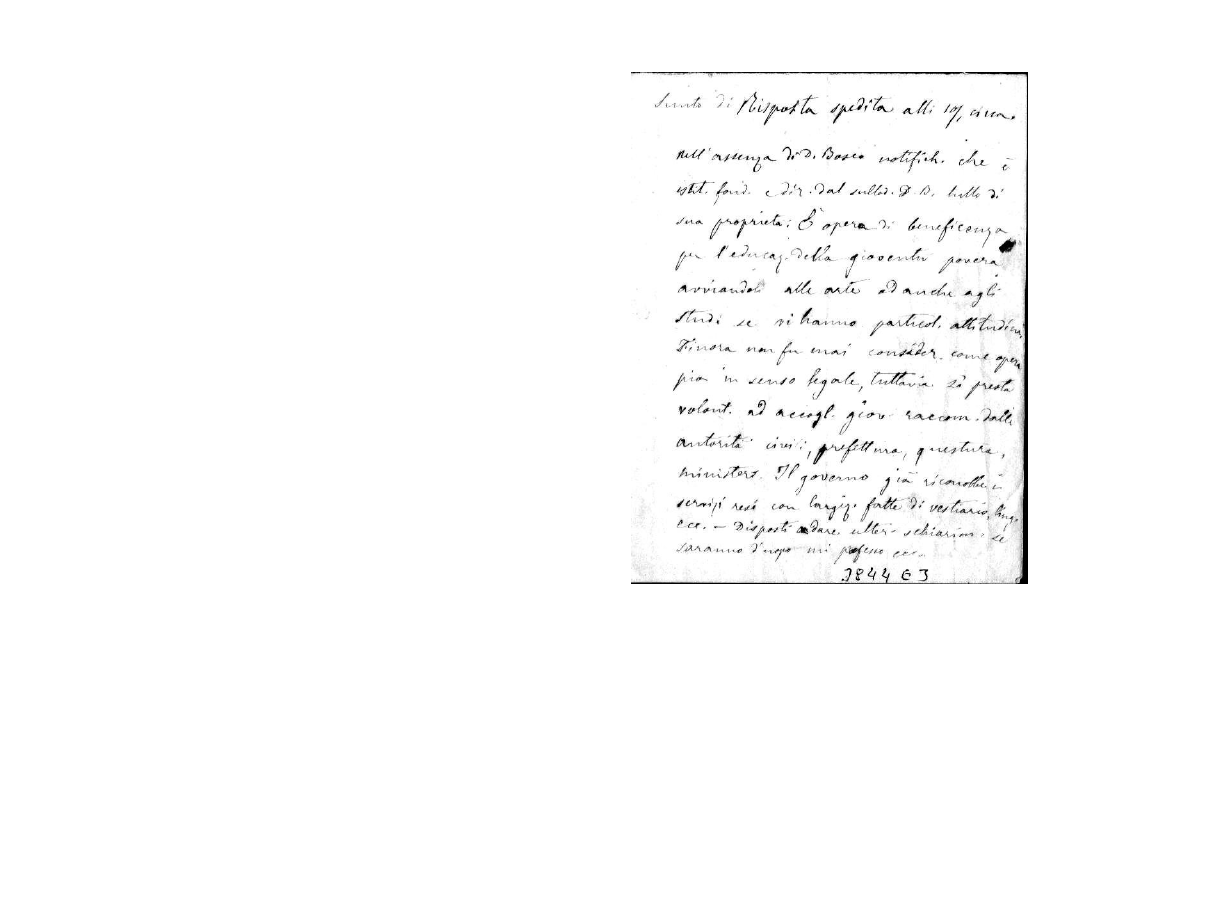 Sunto di Risposta spedita alli 19, circa.
nell'assenza di D. Bosco notifich. che è
istit. fond. e dir. dal sullod. D. B. tutto di
sua proprietà; È opera di beneficenza
per l'educaz. della gioventù povera
avviandoli alle arte ad anche agli
studi se vi hanno particol. attitudini.
Finora non fu mai consider. come opera
pia in senso legale, tuttavia si presta
volont. ad accogl. giov. raccom. dalle
autorità civili, prefettura, questura,
ministero. Il governo già riconobbe i
servizi resi con largiz. fatte di vestiario,
ecc. – Disposti a dare ulter. schiarim. se
saranno d'uopo mi professo ecc.
3844 E3